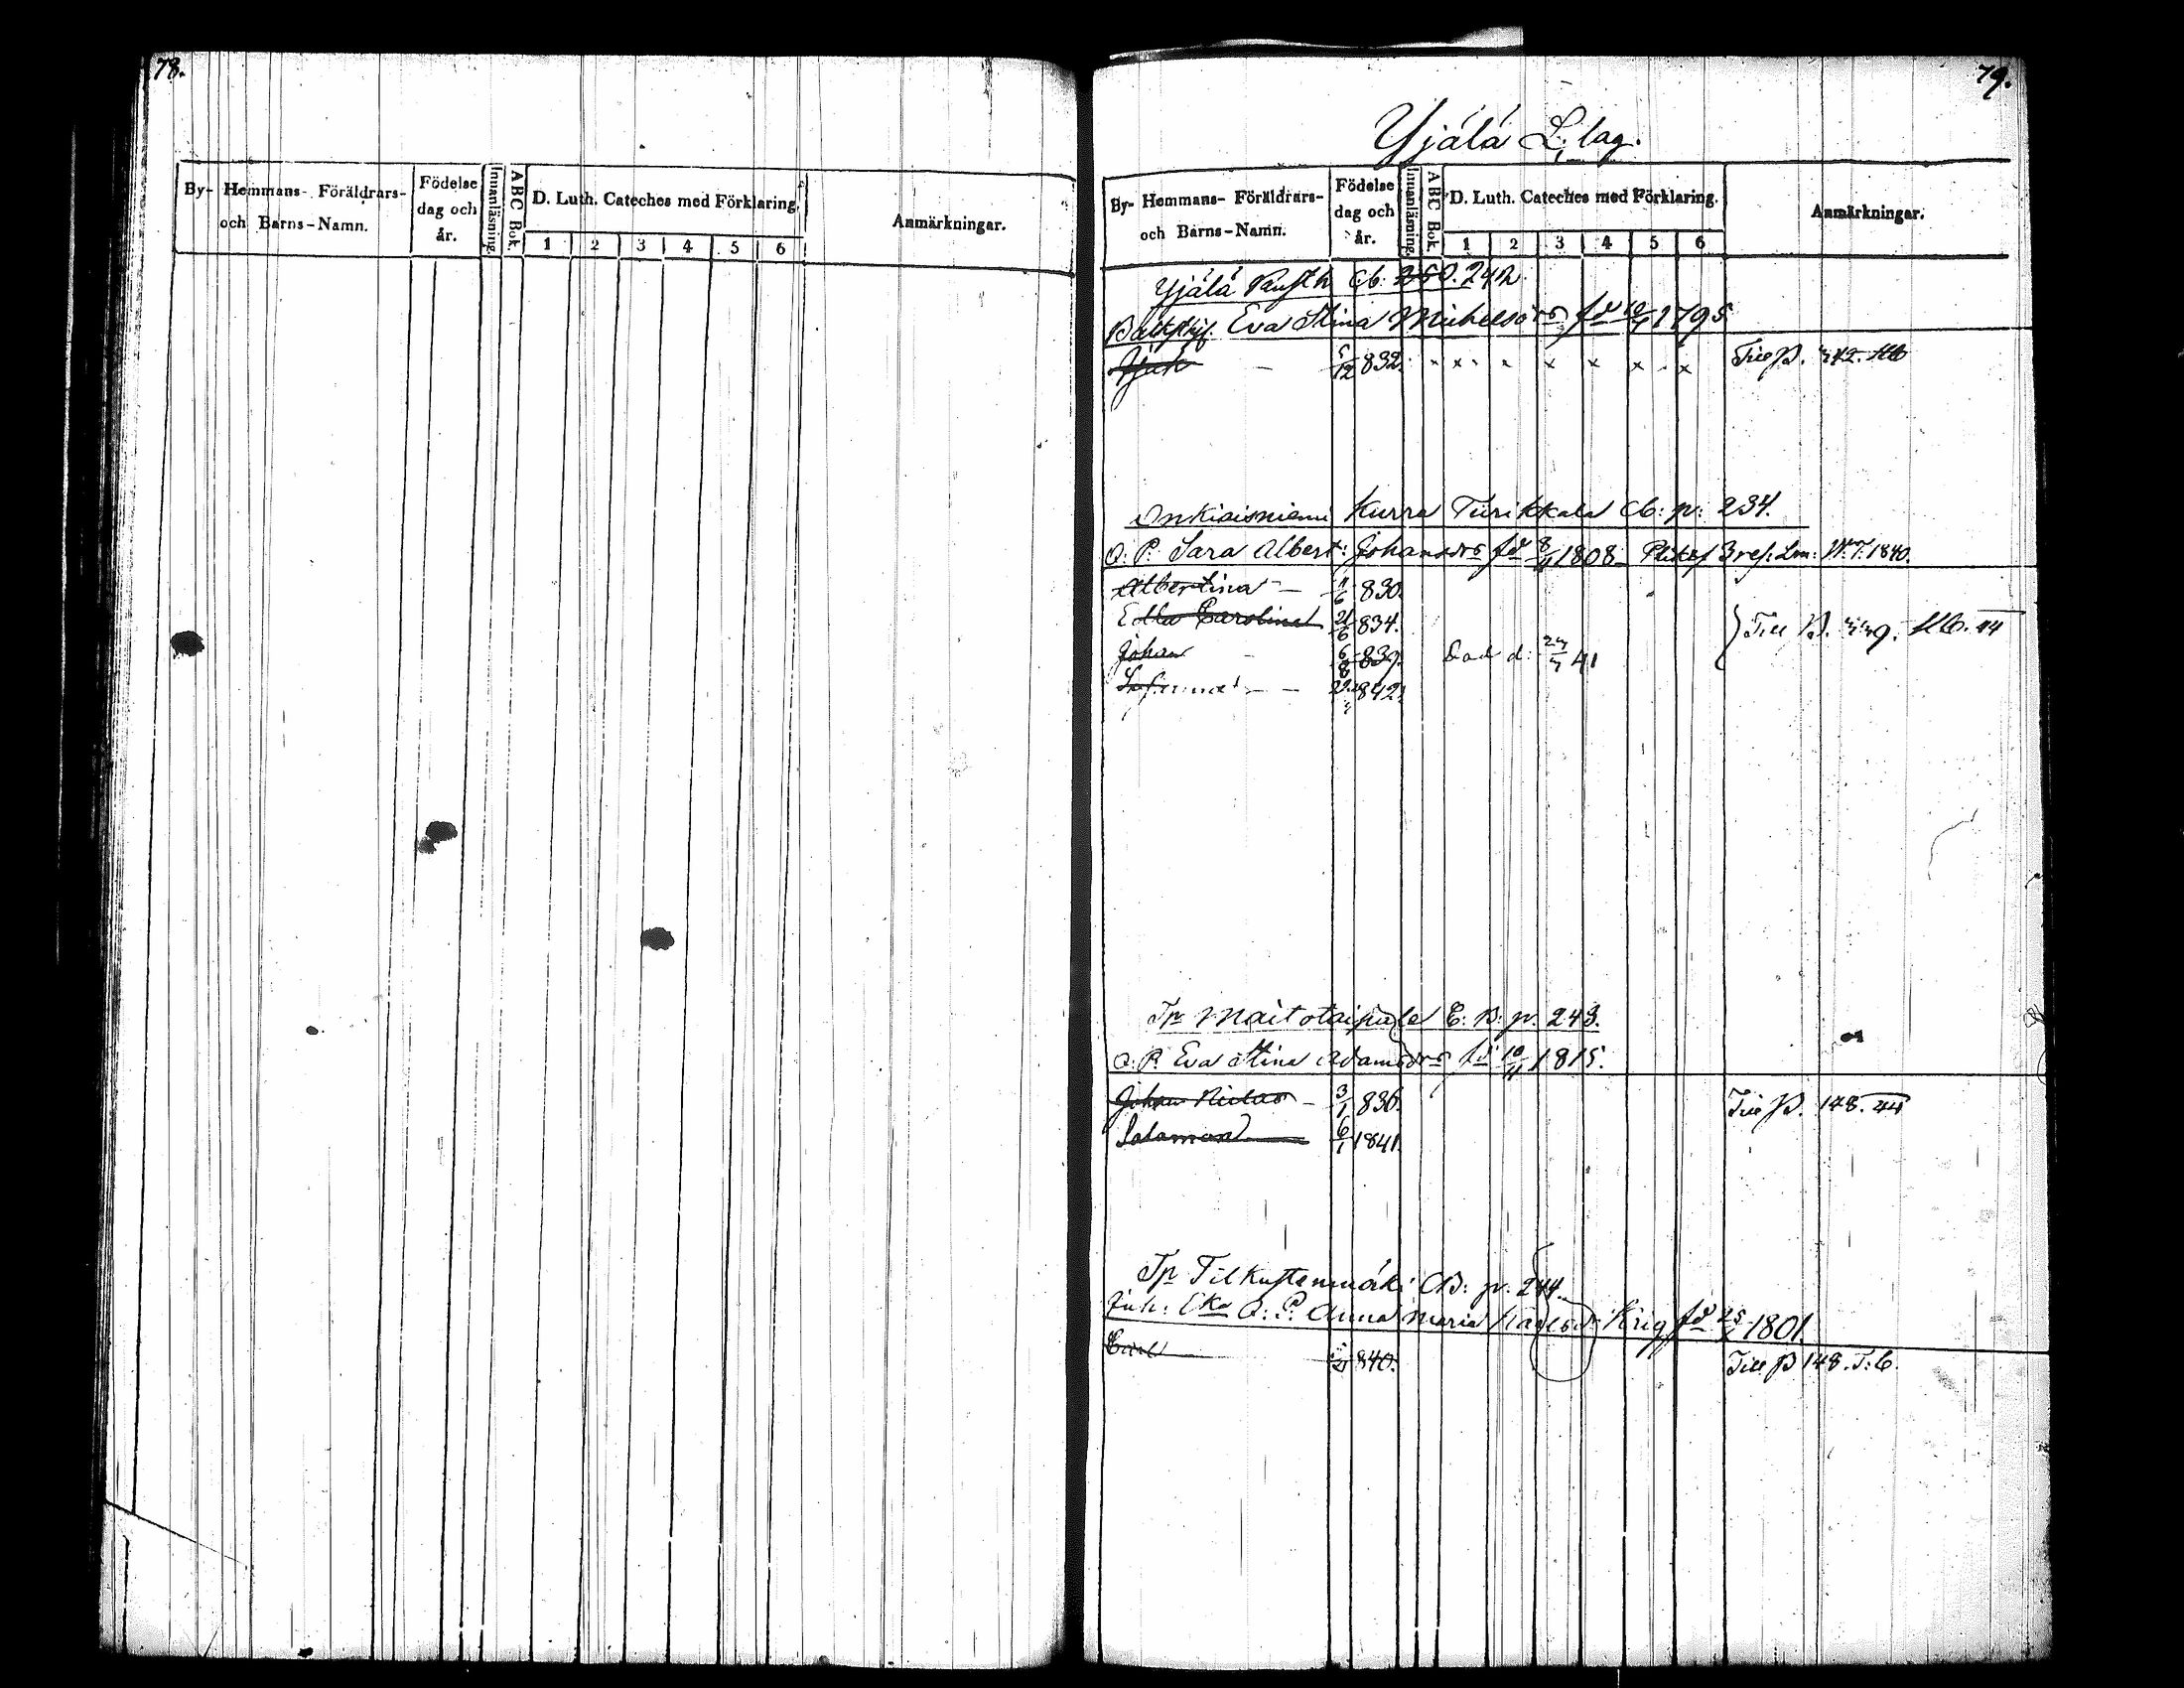 78.
By- Hemmans- Föräldrars- och Barns-Namn.
Födelse dag och år.
Innanläsning.
A B C Bok.
D. Luth. Cateches med Förklaring.
1 2 3 4 5 6
Anmärkningar.
79.
Yjälä L: lag.
By- Hemmans- Föräldrars- och Barns-Namn.
Födelse dag och år.
Innanläsning.
A B C Bok.
D. Luth. Cateches med Förklaring.
1 2 3 4 5 6
Anmärkningar.
Yjälä Rusth Cb: 242
Eva Stina Michelsdr fd 1795
12 832. x x x x x x Till p.
Onkiaisniemi Kurra Tiirikkala Cb: p: 234.
Q: P: Sara Albert: Johansdr fd 8/4 1808 1840.
Albertina - 11/6 830.
Edla Carolina 21/6 834.
Johan 6/8 839. Död d: 41
842.
Till P.
Tp Maitotaipale C: B: p. 243.
Q: P. Eva Stina Adamsdr fd 10/4 1815.
Johan Niclas - 3/1 836. Till p. 148. 44
Salamon 6/1 1841.
Tp Tilkustenmäki CB: p. 244.
Q: P: Anna Maria Krig fd 1801.
Carl 840. Till p 148. T: b.